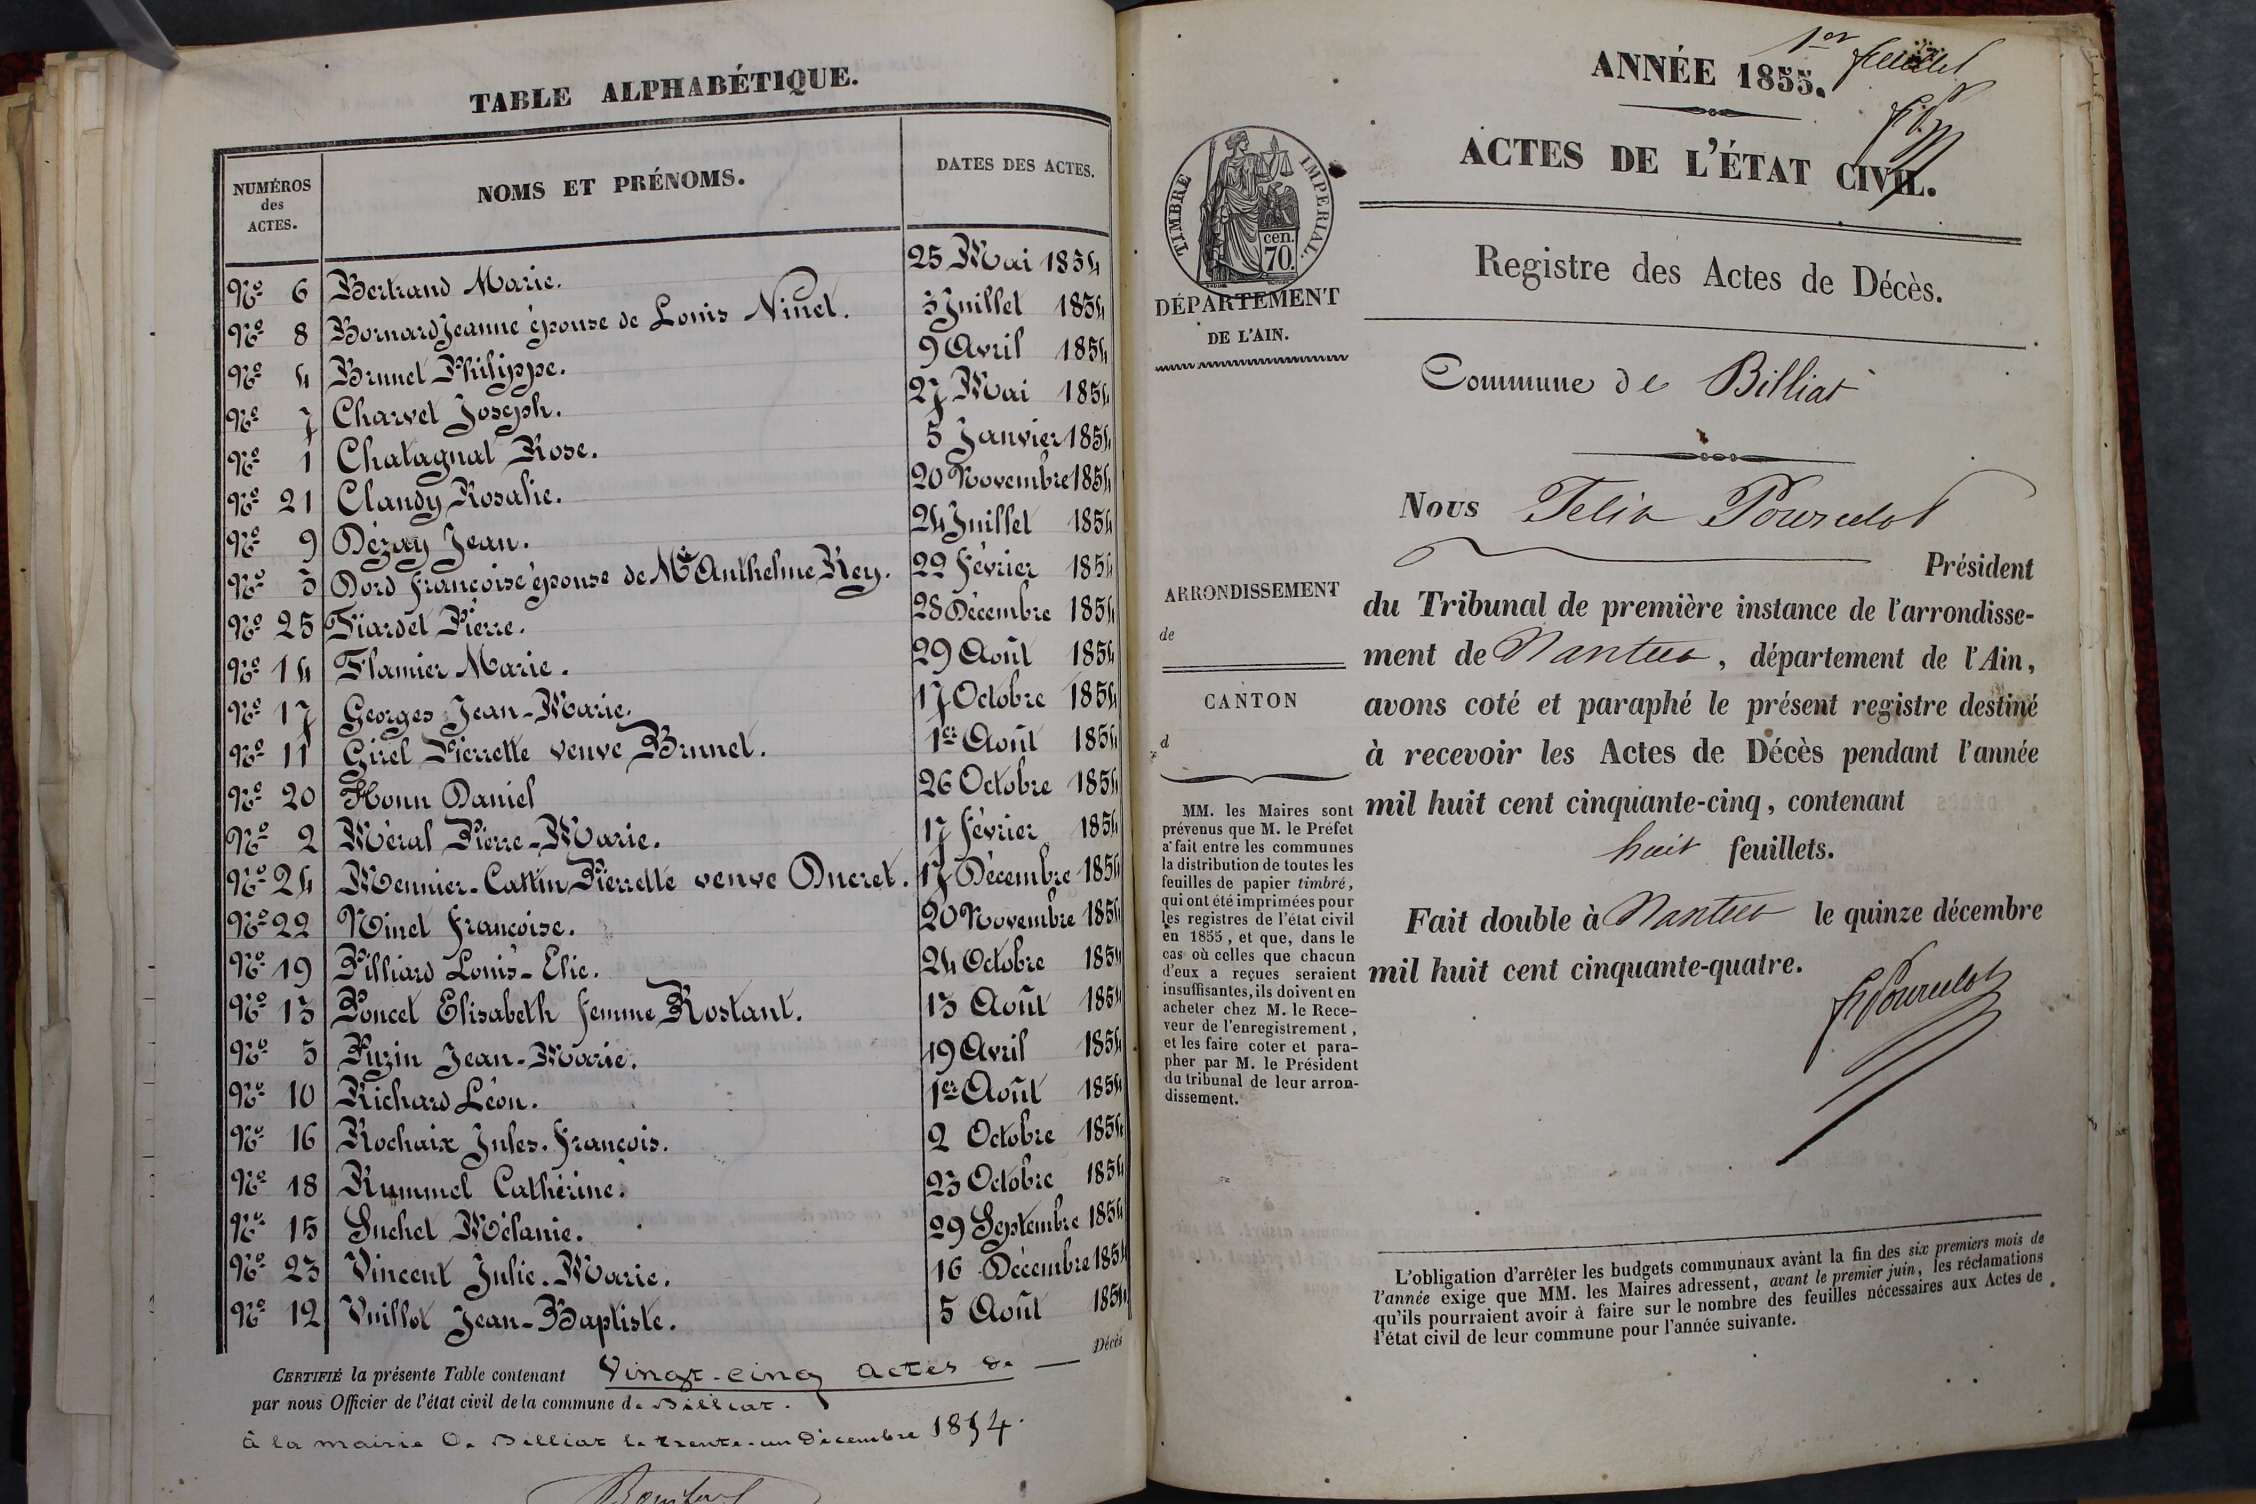 TABLE ALPHABÉTIQUE.
NUMÉROS des ACTES. NOMS ET PRÉNOMS. DATES DES ACTES.
Nº 6 Bertrand Marie. 25 Mai 1854
Nº 8 Bornard Jeanne épouse de Louis Ninet. 3 Juillet 1854
Nº 4 Brunet Philippe. 9 Avril 1854
Nº 7 Charvet Joseph. 27 Mai 1854
Nº 1 Chatagnat Rose. 5 Janvier 1854
Nº 21 Claudy Rosalie. 20 Novembre 1854
Nº 9 Dézay Jean. 24 Juillet 1854
Nº 3 Dord françoise épouse de Mr Anthelme Rey. 22 février 1854
Nº 25 Fiardet Pierre. 28 Décembre 1854
Nº 14 Flamier Marie. 29 Août 1854
Nº 17 Georges Jean-Marie. 17 Octobre 1854
Nº 11 Girel Pierrette veuve Brunet. 1er Août 1854
Nº 20 Honn Daniel 26 Octobre 1854
Nº 2 Méral Pierre-Marie. 17 février 1854
Nº 24 Meunier-Cattin Pierrette veuve Ducret. 17 Décembre 1854
Nº 22 Ninet françoise. 20 Novembre 1854
Nº 19 Pilliard Louis-Elie. 24 Octobre 1854
Nº 13 Poncet Elisabeth femme Rostant. 13 Août 1854
Nº 5 Puzin Jean-Marie. 19 Avril 1854
Nº 10 Richard Léon. 1er Août 1854
Nº 16 Rochaix Jules-françois. 2 Octobre 1854
Nº 18 Rummel Cathérine. 23 Octobre 1854
Nº 15 Suchet Mélanie. 29 Septembre 1854
Nº 23 Vincent Julie-Marie. 16 Décembre 1854
Nº 12 Vuillot Jean-Baptiste. 5 Août 1854
CERTIFIÉ la présente Table contenant Vingt-cinq actes de — Décès
par nous Officier de l'état civil de la commune de Billiat.
à la mairie de Billiat le trente-un Décembre 1854.
1er feuillet
ANNÉE 1855.
ACTES DE L'ÉTAT CIVIL.
TIMBRE IMPERIAL.
cen.
70.
DÉPARTEMENT
DE L'AIN.
Registre des Actes de Décès.
Commune de Billiat
Nous Felix Pourcelot
Président
du Tribunal de première instance de l'arrondisse-
ment de Nantua, département de l'Ain,
avons coté et paraphé le présent registre destiné
à recevoir les Actes de Décès pendant l'année
mil huit cent cinquante-cinq, contenant
huit feuillets.
Fait double à Nantua le quinze décembre
mil huit cent cinquante-quatre.
F Pourcelot
ARRONDISSEMENT
de
CANTON
d
MM. les Maires sont
prévenus que M. le Préfet
a fait entre les communes
la distribution de toutes les
feuilles de papier timbré,
qui ont été imprimées pour
les registres de l'état civil
en 1855, et que, dans le
cas où celles que chacun
d'eux a reçues seraient
insuffisantes, ils doivent en
acheter chez M. le Rece-
veur de l'enregistrement,
et les faire coter et para-
pher par M. le Président
du tribunal de leur arron-
dissement.
L'obligation d'arrêter les budgets communaux avant la fin des six premiers mois de
l'année exige que MM. les Maires adressent, avant le premier juin, les réclamations
qu'ils pourraient avoir à faire sur le nombre des feuilles nécessaires aux Actes de
l'état civil de leur commune pour l'année suivante.